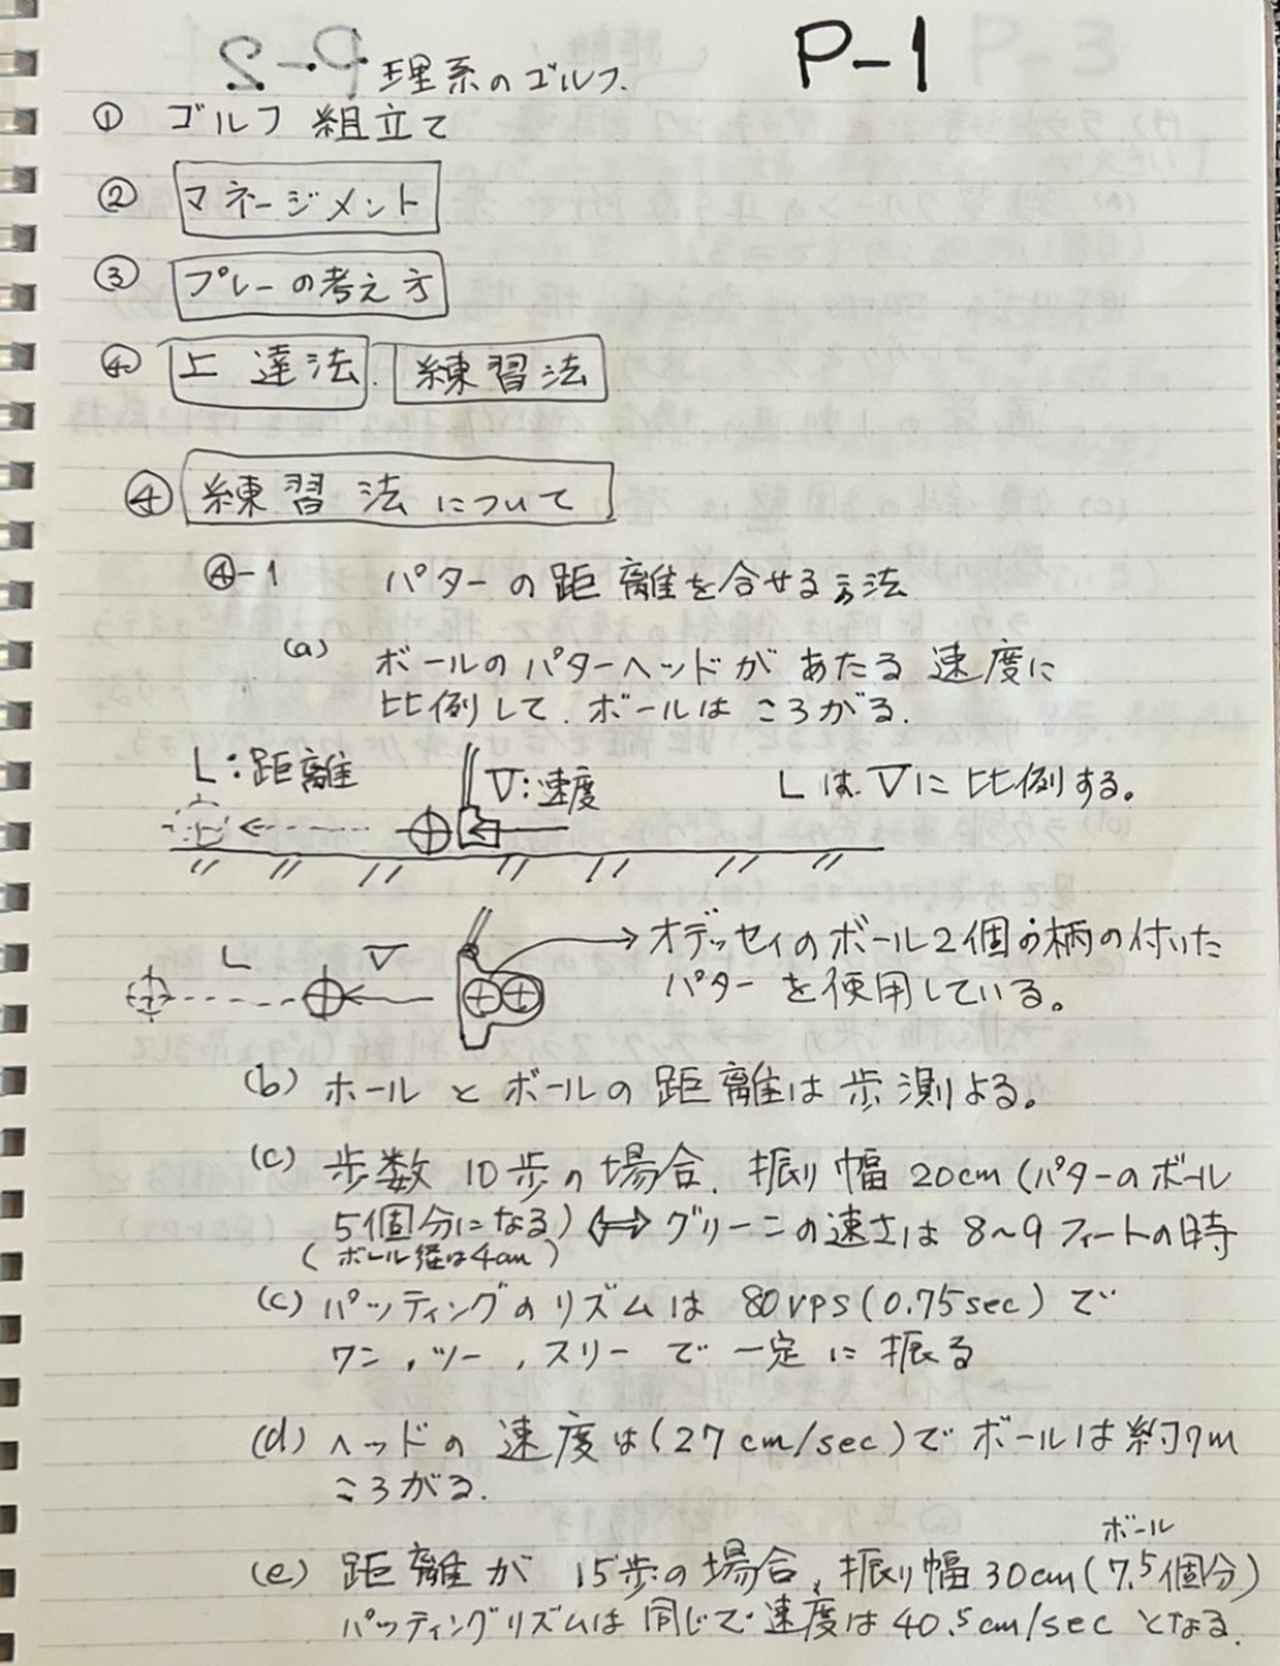 P-1
理系のゴルフ.
① ゴルフ 組立て
② マネージメント
③ プレーの考え方
④ 上達法. 練習法
④ 練習法について
④-1 パターの距離を合せる方法
(a) ボールのパターヘッドが あたる 速度に
比例して. ボールは ころがる.
L:距離 V:速度 Lは Vに 比例する。
L V →オデッセイのボール2個の柄の付いた
パターを使用している。
(b) ホール と ボールの 距離は 歩測よる。
(c) 歩数 10歩の場合. 振り幅 20cm (パターのボール
5個分になる) ⟺ グリーンの速さは 8~9フィートの時
(ボール径は4cm)
(c) パッティングのリズムは 80vps(0.75sec) で
ワン,ツー,スリー で 一定に 振る
(d) ヘッドの 速度は(27cm/sec)で ボールは 約7m
ころがる.
(e) 距離が 15歩の場合、振り幅30cm(ボール7.5個分)
パッティングリズムは 同じで 速度は 40.5cm/sec となる.